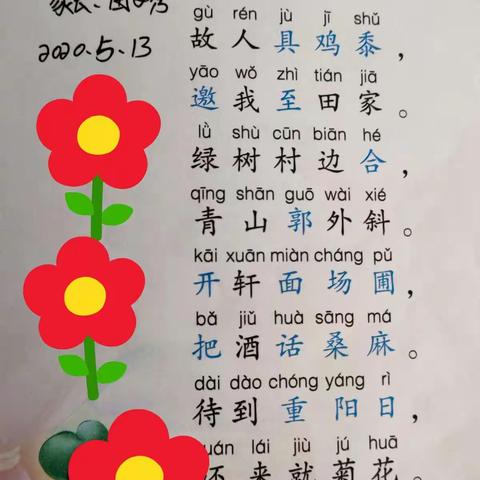 2020.5.13
gù rén jù jī shǔ
故人具鸡黍，
yāo wǒ zhì tián jiā
邀我至田家。
lǜ shù cūn biān hé
绿树村边合，
qīng shān guō wài xié
青山郭外斜。
kāi xuān miàn cháng pǔ
开轩面场圃，
bǎ jiǔ huà sāng má
把酒话桑麻。
dài dào chóng yáng rì
待到重阳日，
lái jiù jú huā
来就菊花。